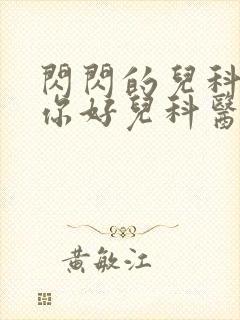 閃閃的兒科
你好兒科醫
黃敏江